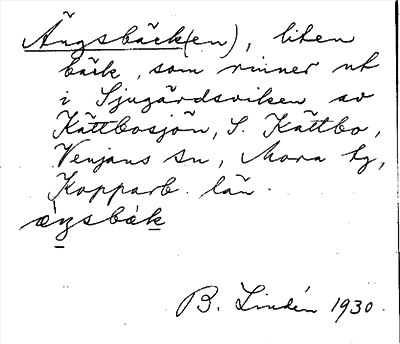 Ängsbäck(en), liten
bäck, som rinner ut
i Sjugårdsviken av
Kättbosjön, S. Kättbo,
Venjans sn, Mora tg,
Kopparb. län.
æŋsbäk
B. Lindén 1930.